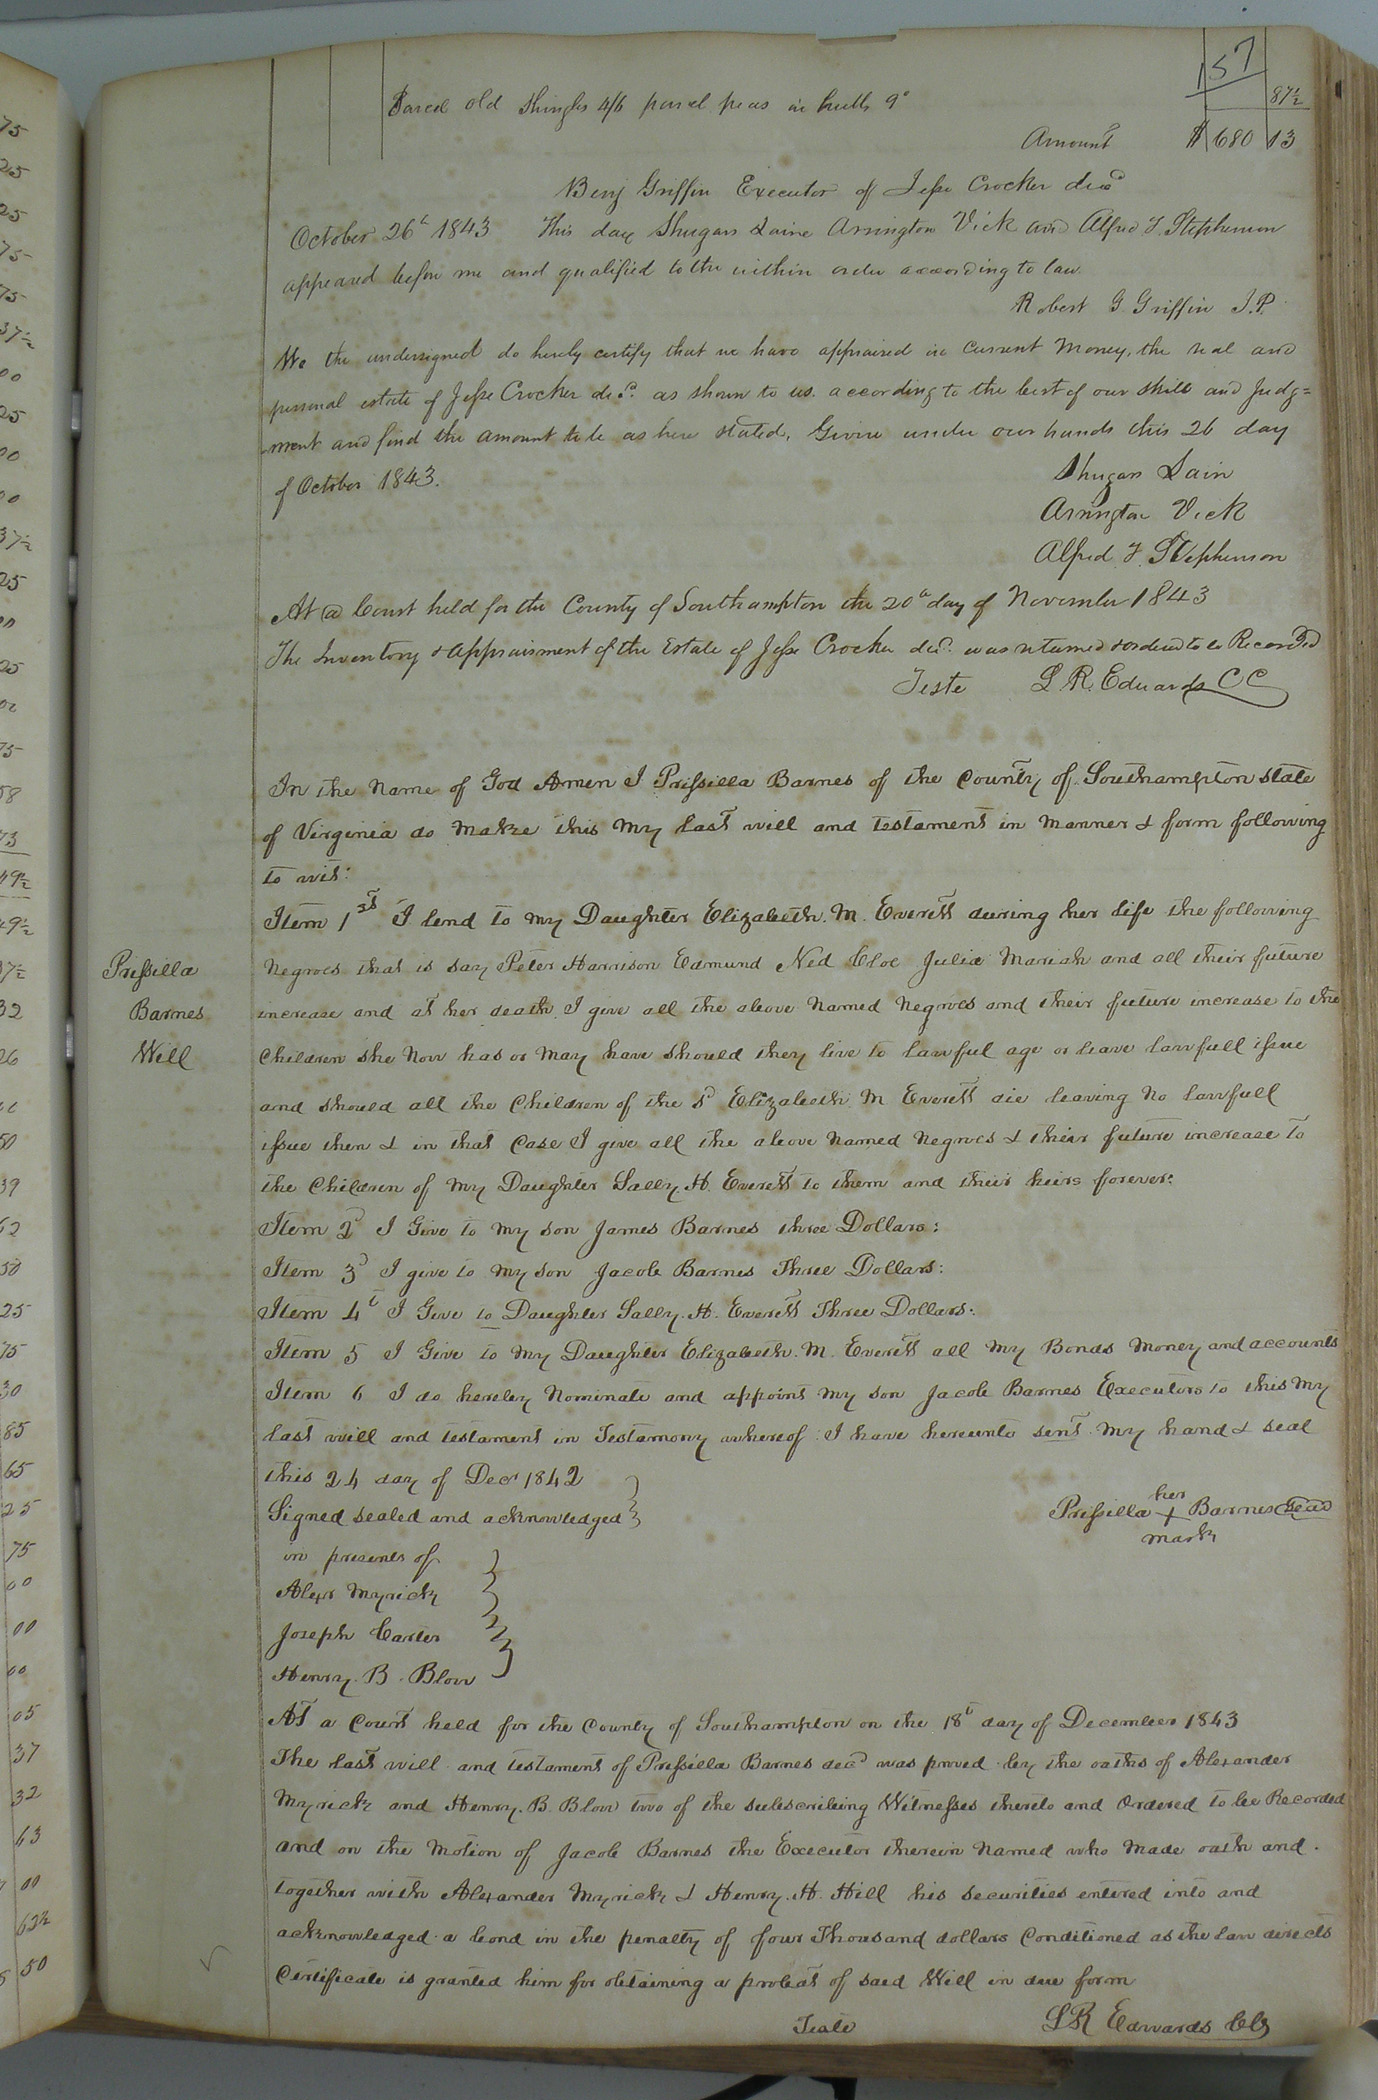 157
Parcel old Shingles 4/6 parcel peas in hulls 9s 87½
Amount $ 680 13
Benj Griffin Executor of Jesse Crocker decd
October 26th 1843 This day Shugars Laine Arrington Vick and Alfred F. Stephenson
appeared before me and qualified to the within order according to law
Robert G. Griffin J.P.
We the undersigned do hereby certify that we have appraised in Current Money, the real and
personal estate of Jesse Crocker decd. as shown to us. according to the best of our skill and judg=
-ment and find the amount to be as here stated, Given under our hands this 26 day
of October 1843.
Shugars Lain
Arrington Vick
Alfred F. Stephenson
At a Court held for the County of Southampton the 20th day of November 1843
The Inventory & Appraisment of the Estate of Jesse Crocker decd. was returned & ordered to be Recorded
Teste L. R. Edwards CC
In the Name of God Amen I Prissilla Barnes of the County of Southampton state
of Virginia do make this My last will and testament in manner & form following
to wit:
Item 1st I lend to my Daughter Elizabeth. M. Everett during her life the following
Negroes that is say Peter Harrison Edmund Ned Cloe Julia Mariah and all their future
Prissilla
increase and at her death I give all the above Named Negroes and their future increase to the
Barnes
Children she Now has or may have should they live to lawful age or leave lawfull issue
Will
and should all the Children of the sd Elizabeth M Everett die leaving No lawfull
issue then & in that Case I give all the above Named Negroes & their future increase to
the Children of my Daughter Sally. H. Everett to them and their heirs forever:
Item 2d I Give to my son James Barnes three Dollars:
Item 3d I give to my son Jacob Barnes Three Dollars:
Item 4t I Give to Daughter Sally. H. Everett Three Dollars:
Item 5 I Give to my Daughter Elizabeth. M. Everett all my Bonds Money and accounts
Item 6 I do hereby Nominate and appoint my son Jacob Barnes Executors to this my
last will and testament in Testamony whereof I have hereunto sent my hand & seal
this 24 day of Decr 1842
Signed sealed and acknowledged
her
Prissilla + Barnes Seal
mark
in presents of
Alexr Myrick
Joseph Carter
Henry. B. Blow
At a Court held for the County of Southampton on the 18t day of December 1843
The last will and testament of Prissilla Barnes decd was proved by the oaths of Alexander
Myrick and Henry. B. Blow two of the subscribing Witnesses thereto and Ordered to be Recorded
and on the Motion of Jacob Barnes the Executor therein Named who made oath and.
together with Alexander Myrick & Henry. H. Hill his securities entered into and
acknowledged a bond in the penalty of four Thousand dollars Conditioned as the law directs
Certificate is granted him for obtaining a probat of said Will in due form
Teste L R Edwards Clk